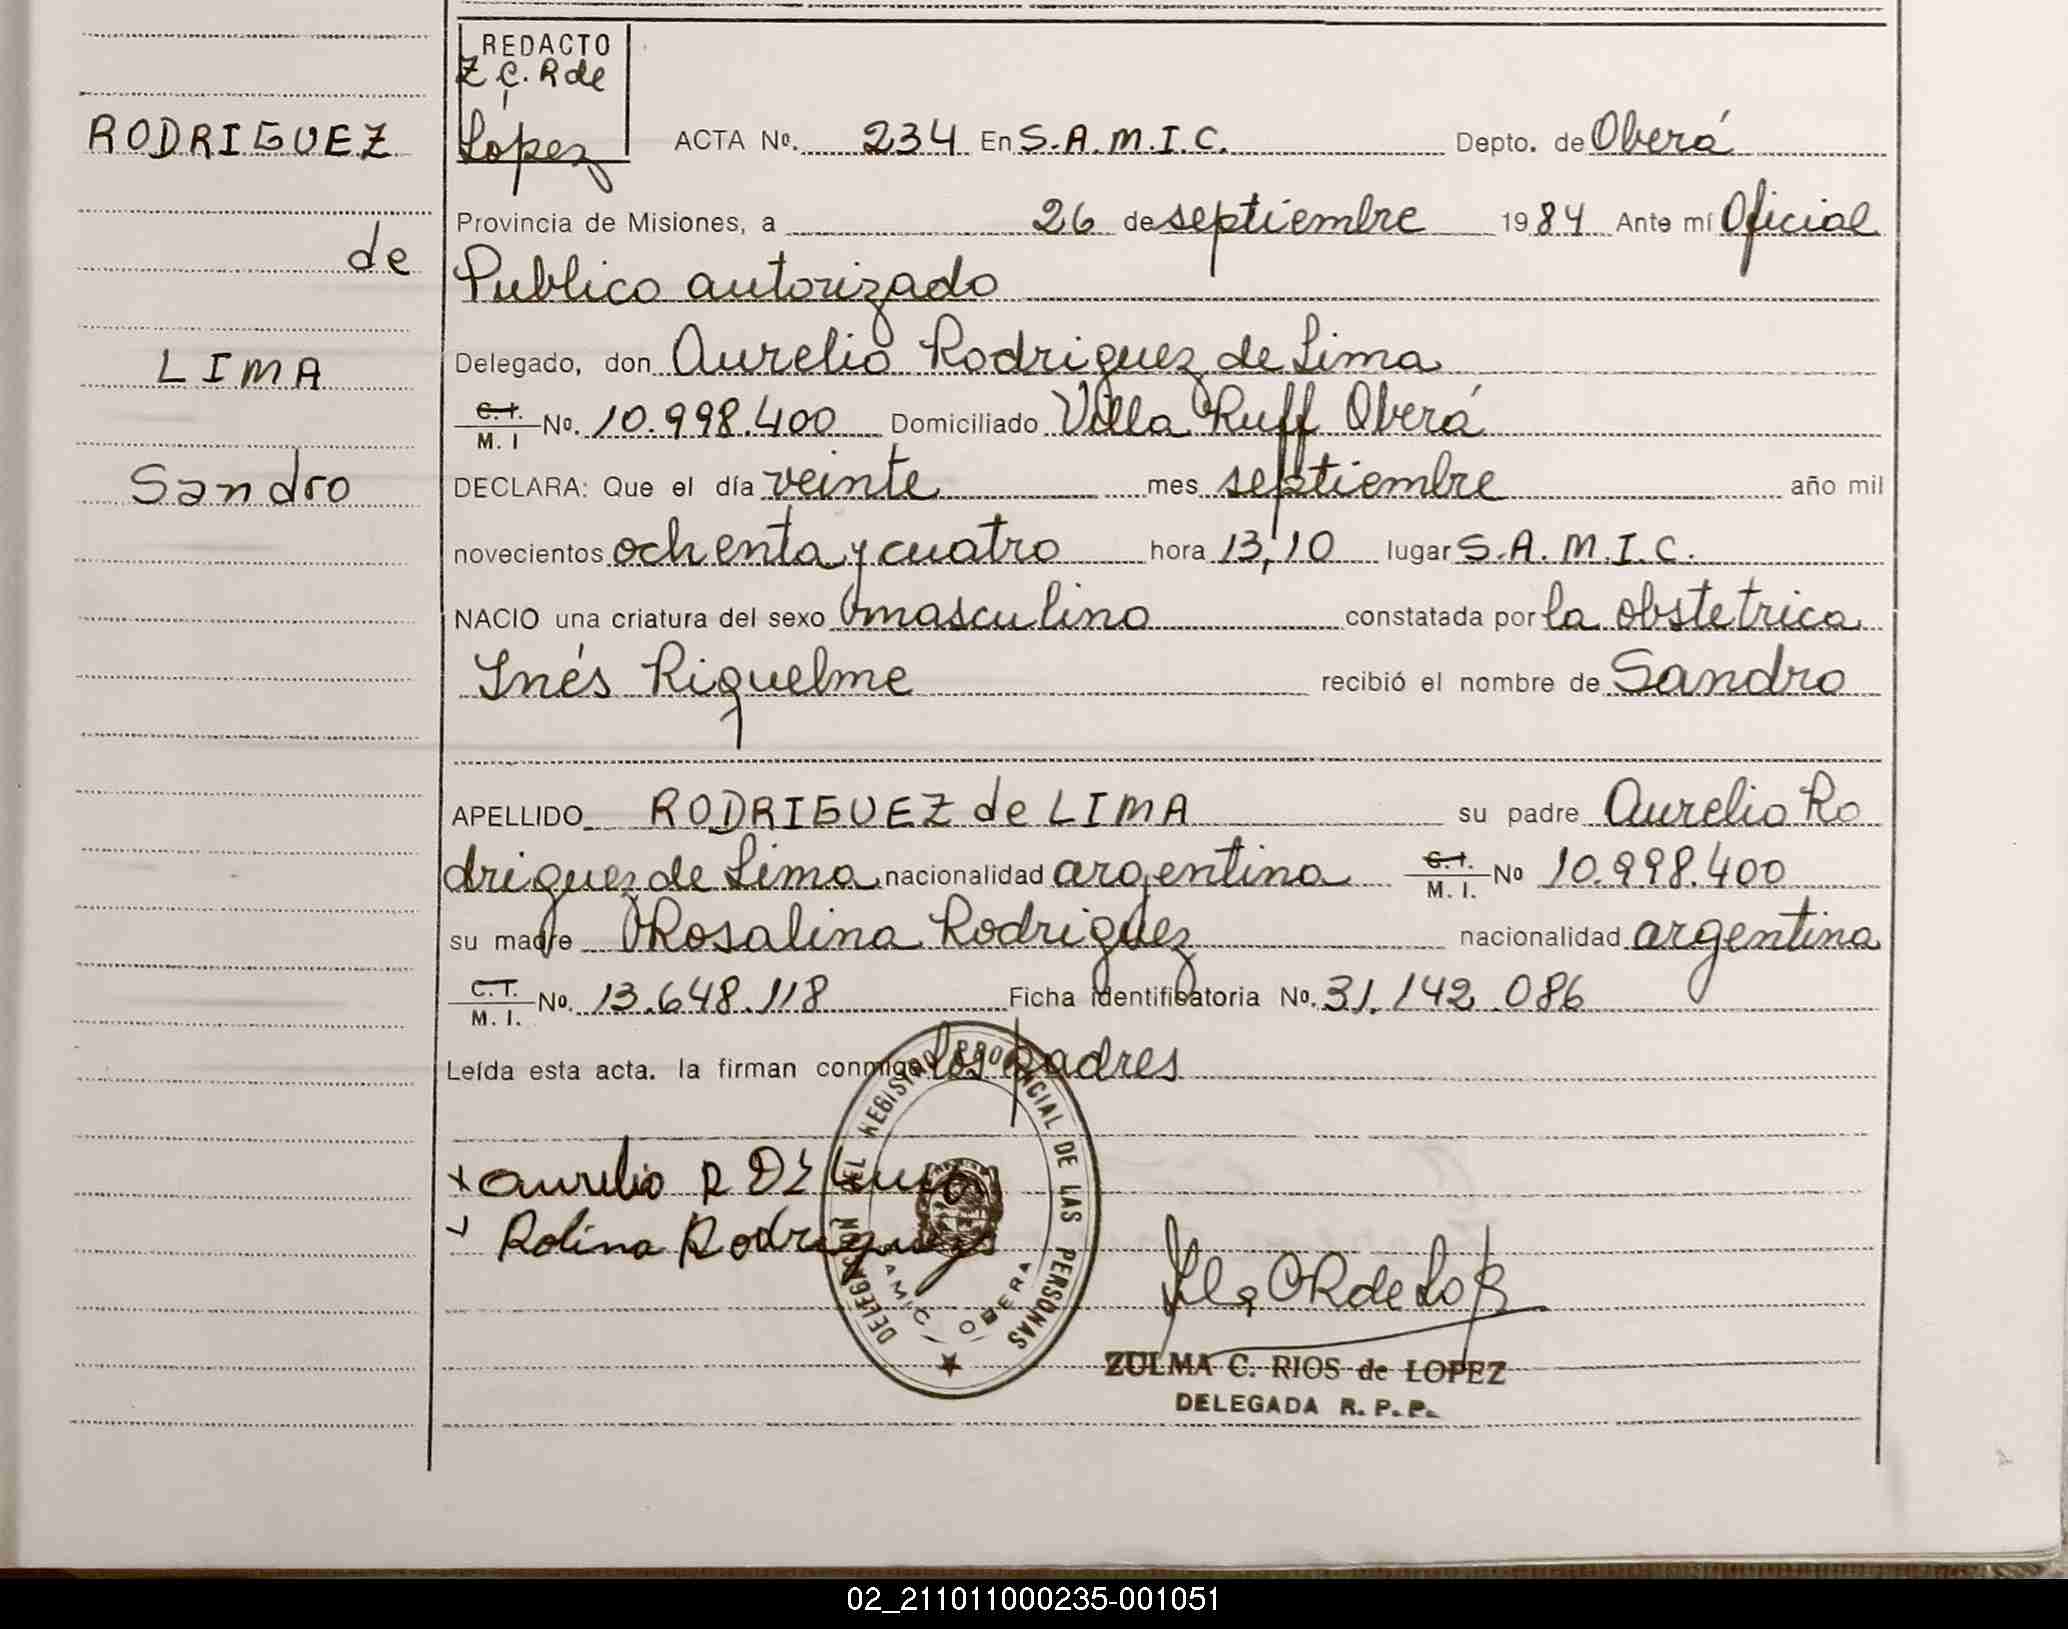 REDACTO
Z C. R de
Lopez
RODRIGUEZ
de
LIMA
Sandro
ACTA No. 234 En S.A.M.I.C. Depto. de Oberá
Provincia de Misiones, a 26 de septiembre 1984 Ante mí Oficial
Publico autorizado
Delegado, don Aurelio Rodriguez de Lima
C.I. M. I No. 10.998.400 Domiciliado Villa Ruff Oberá
DECLARA: Que el día veinte mes septiembre año mil
novecientos ochenta y cuatro hora 13,10 lugar S.A.M.I.C.
NACIO una criatura del sexo masculino constatada por la obstetrica
Inés Riquelme recibió el nombre de Sandro
APELLIDO RODRIGUEZ de LIMA su padre Aurelio Ro
driguez de Lima nacionalidad argentina C.I. M. I. No 10.998.400
su madre Rosalina Rodriguez nacionalidad argentina
C.I. M. I. No. 13.648.118 Ficha identificatoria No. 31.142.086
Leída esta acta. la firman conmigo los padres
Aurelio R DE Lima
Rolina Rodriguez
DELEGACION DEL REGISTRO PROVINCIAL DE LAS PERSONAS
SAMIC - OBERA
ZULMA C. RIOS de LOPEZ
DELEGADA R. P. P.
02_211011000235-001051